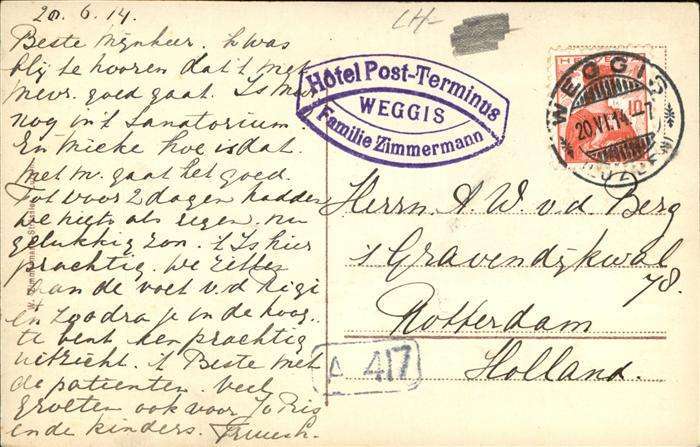 20.6.14.
Beste Mijnheer. k was
blij te hooren dat 't met
mevr. goed gaat. Is
nog in 't Sanatorium.
En Mieke hoe is dat.
Met m. gaat het goed.
Tot voor 2 dagen hadden
we niets als regen. nu
gelukkig zon. 't Is hier
prachtig. We zitten
aan de voet v.d. Rigi
en zoodra je in de hoog
te bent een prachtig
uitzicht. 't Beste met
de patienten. veel
groeten ook voor
en de kinders.
CH-
Hôtel Post-Terminus
WEGGIS
Familie Zimmermann
HELVETIA
10
WEGGIS
20.VI.14.-7
(LUZERN)
Herrn A. W. v.d. Berg
's Gravendijkwal
78.
Rotterdam
Holland.
A 417